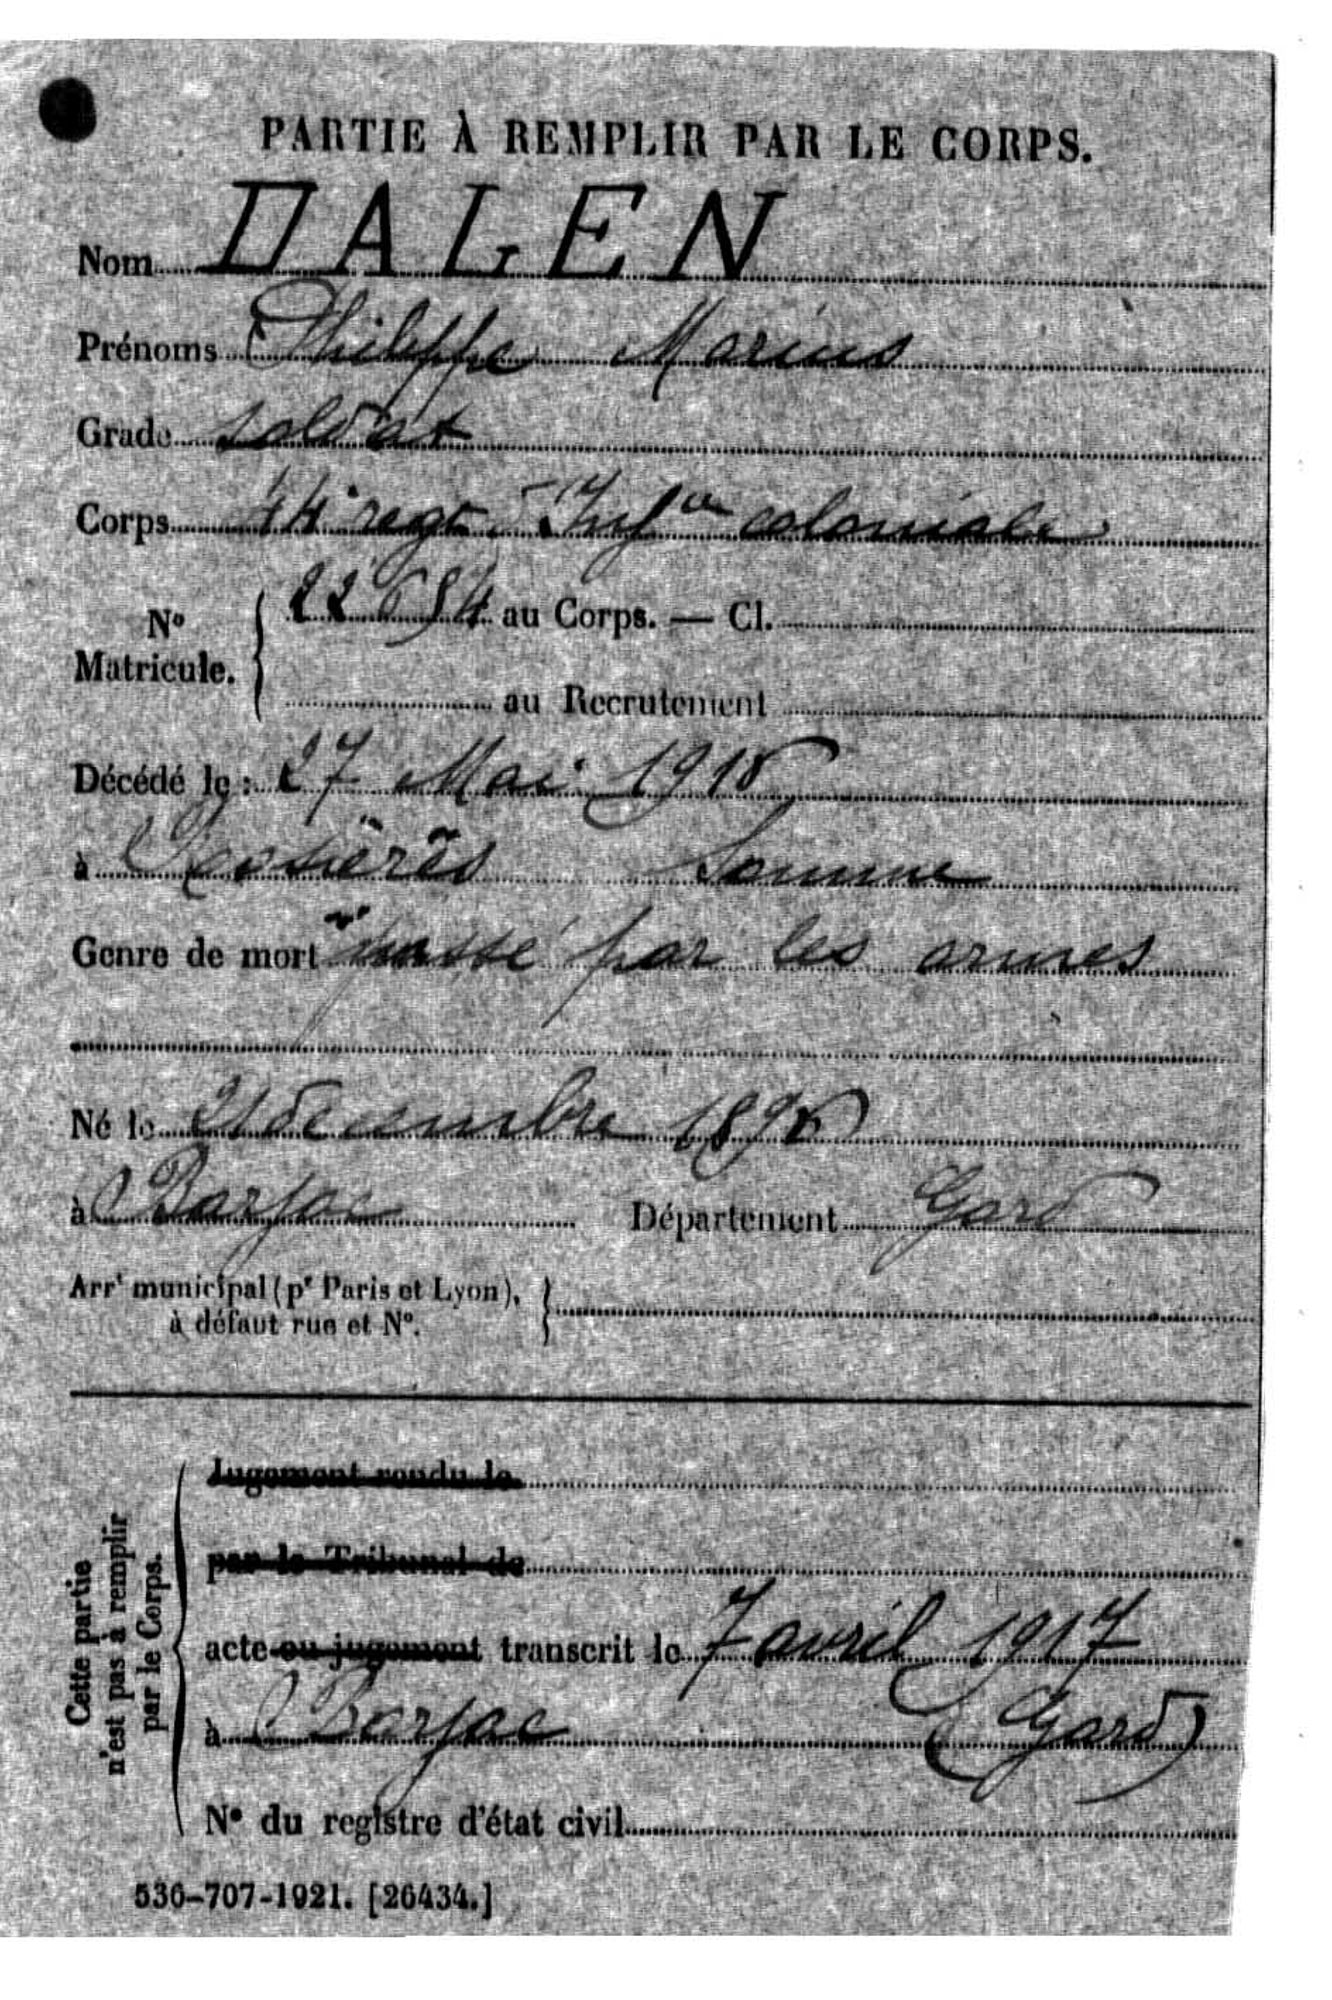 PARTIE À REMPLIR PAR LE CORPS.
Nom DALEN
Prénoms Philippe Marius
Grade soldat
Corps 44e regt Infie coloniale
No Matricule. 22654 au Corps. — Cl.
au Recrutement
Décédé le : 27 Mai 1916
à Rosières Somme
Genre de mort passé par les armes
Né le 21 décembre 1896
à Barjac Département Gard
Arrt municipal (pr Paris et Lyon),
à défaut rue et No.
Cette partie
n'est pas à remplir
par le Corps.
Jugement rendu le
par le Tribunal de
acte ou jugement transcrit le 7 avril 1917
à Barjac (Gard)
No du registre d'état civil
536-707-1921. [26434.]